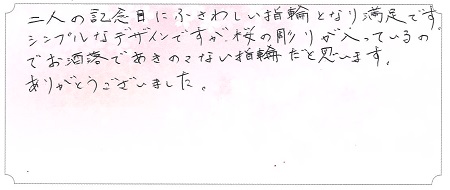 二人の記念日にふさわしい指輪となり満足です
シンプルなデザインですが、桜の彫りが入っているの
でお洒落であきのこない指輪だと思います。
ありがとうございました。